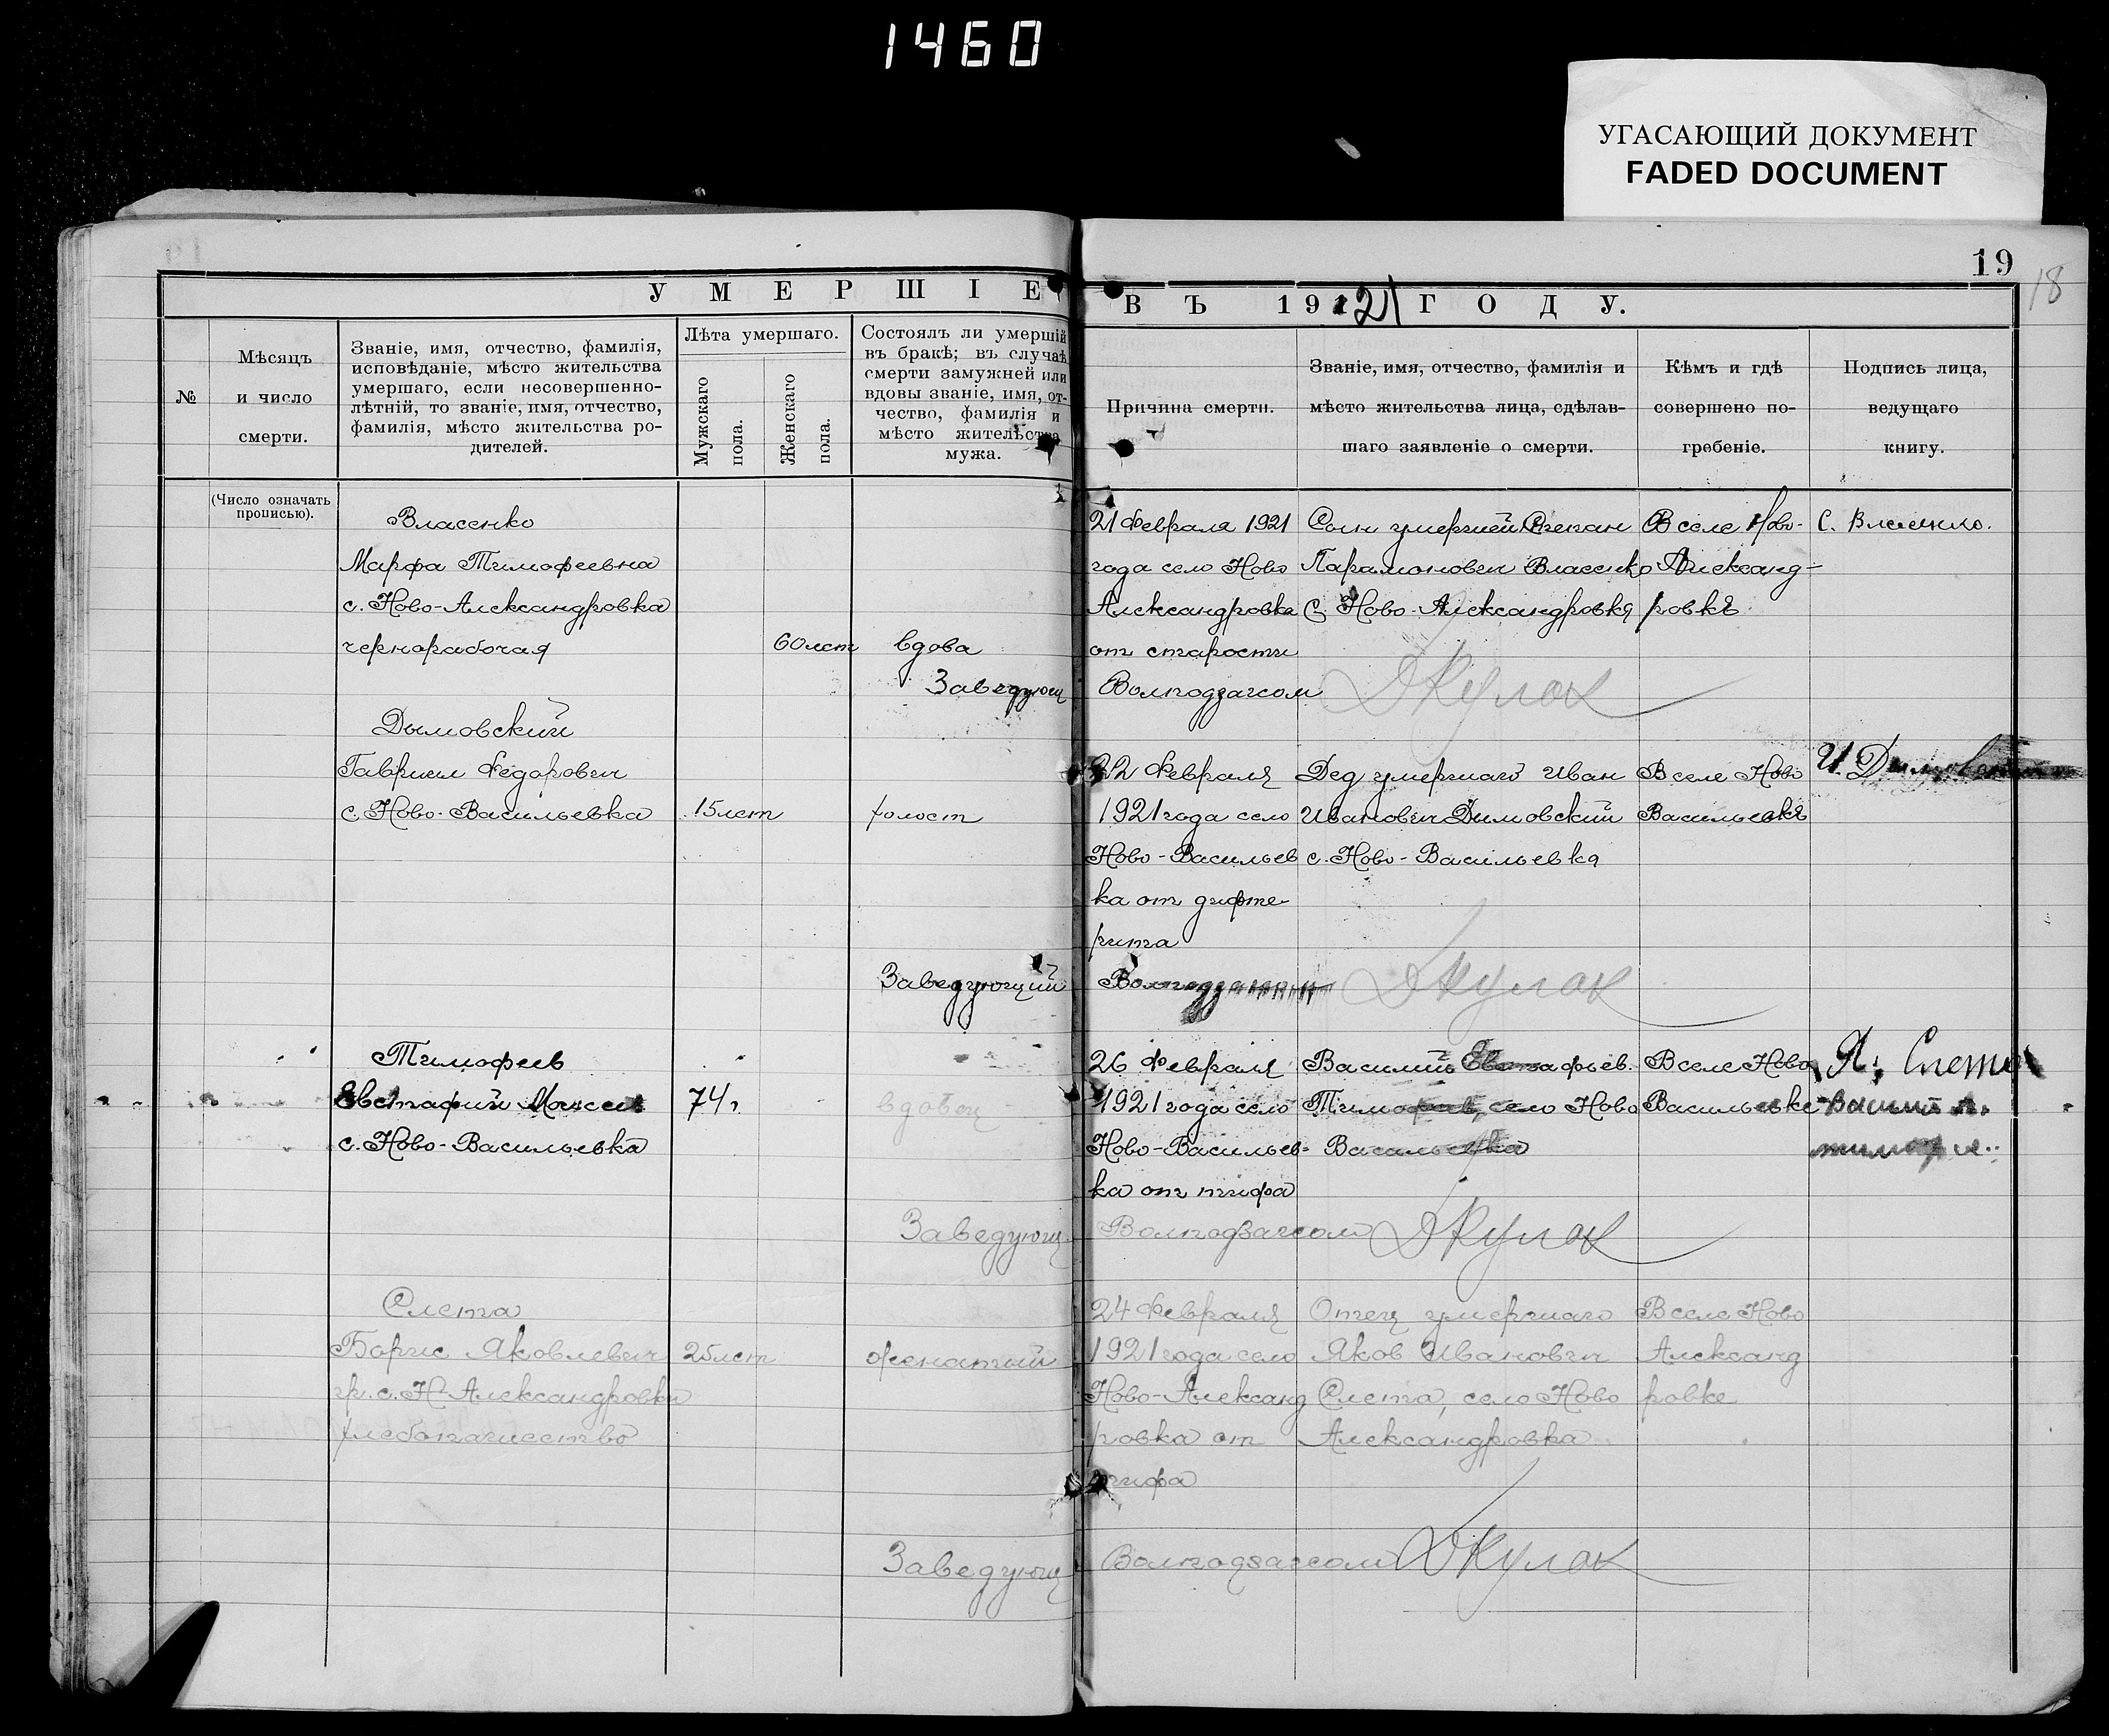 1460
УГАСАЮЩИЙ ДОКУМЕНТ
FADED DOCUMENT
19
18
УМЕРШІЕ
ВЪ 1921 ГОДУ.
№
Мѣсяцъ
и число
смерти.
Званіе, имя, отчество, фамилія,
исповѣданіе, мѣсто жительства
умершаго, если несовершенно-
лѣтній, то званіе, имя, отчество,
фамилія, мѣсто жительства ро-
дителей.
Лѣта умершаго.
Мужскаго
пола.
Женскаго
пола.
Состоялъ ли умершій
въ бракѣ; въ случаѣ
смерти замужней или
вдовы званіе, имя, от-
чество, фамилія и
мѣсто жительства
мужа.
Причина смерти.
Званіе, имя, отчество, фамилія и
мѣсто жительства лица, сдѣлав-
шаго заявленіе о смерти.
Кѣмъ и гдѣ
совершено по-
гребеніе.
Подпись лица,
ведущаго
книгу.
(Число означать
прописью).
Власенко
Марфа Тимофеевна
с. Ново-Александровка
чернорабочая
60 лет
вдова
21 Февраля 1921
года село Ново
Александровка
от старости
Сын умершей Степан
Парамонович Власенко
С. Ново-Александровка
В селе Ново-
Александ-
ровкѣ
С. Власенко.
Заведующ
Волподзагсом
ДКулак
Дымовский
Гавриил Федорович
с. Ново-Васильевка
15 лет
холост
22 Февраля
1921 года село
Ново-Васильев
ка от дифте-
рита
Дед умершаго Иван
Иванович Дымовский
с. Ново-Васильевка
В селе Ново
Васильевкѣ
И. Дымовский
Заведующий
Волподзагсом
ДКулак
Тимофеев
Евстафий Моисеев
с. Ново-Васильевка
74 г.
вдовец
26 Февраля
1921 года село
Ново-Васильев=
ка от тифа
Василий Евстафьев.
Тимофеев, село Ново
Васильевка
В селе Ново
Васильевке
Я. Слета
Васили
Заведующ
Волподзагсом
ДКулак
Слета
Борис Яковлевич
гр. с. Н-Александровки
хлебопашество
25 лет
женатый
24 Февраля
1921 года село
Ново-Александ
ровка от
тифа
Отец умершаго
Яков Иванович
Слета, село Ново
Александровка
В селе Ново
Александ
ровке
Заведующ
Волподзагсом
ДКулак